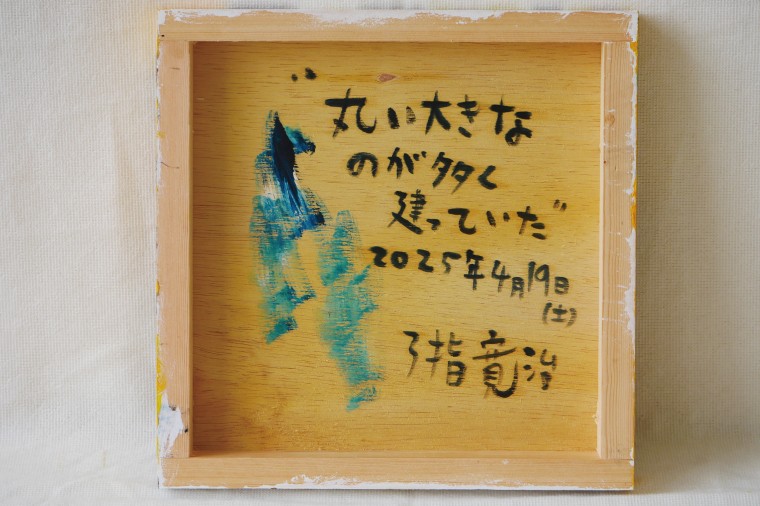 “丸い大きな
のが多く
建っていた”
2025年4月19日
(土)
弓指寛治